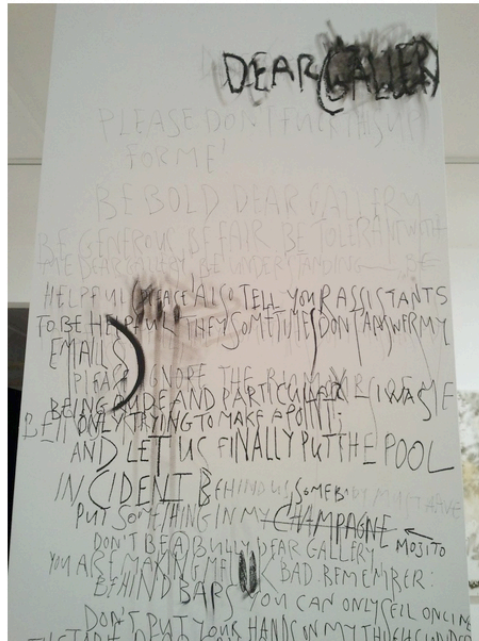 DEAR GALLERY
PLEASE DON'T FUCK THIS UP
FOR ME!
BE BOLD DEAR GALLERY
BE GENEROUS BE FAIR BE TOLERANT WITH
ME DEAR GALLERY BE UNDERSTANDING BE
HELPFUL PLEASE ALSO TELL YOUR ASSISTANTS
TO BE HELPFUL THEY SOMETIMES DON'T ANSWER MY
EMAILS
PLEASE IGNORE THE RUMOURS OF ME
BEING RUDE AND PARTICULAR I WAS
ONLY TRYING TO MAKE A POINT;
AND LET US FINALLY PUT THE POOL
INCIDENT BEHIND US SOMEBODY MUST HAVE
PUT SOMETHING IN MY CHAMPAGNE
MOJITO
DON'T BE A BULLY DEAR GALLERY
YOU ARE MAKING ME LOOK BAD. REMEMBER:
BEHIND BARS YOU CAN ONLY SELL ONLINE
DON'T PUT YOUR HANDS ON MY THIGH UNDER